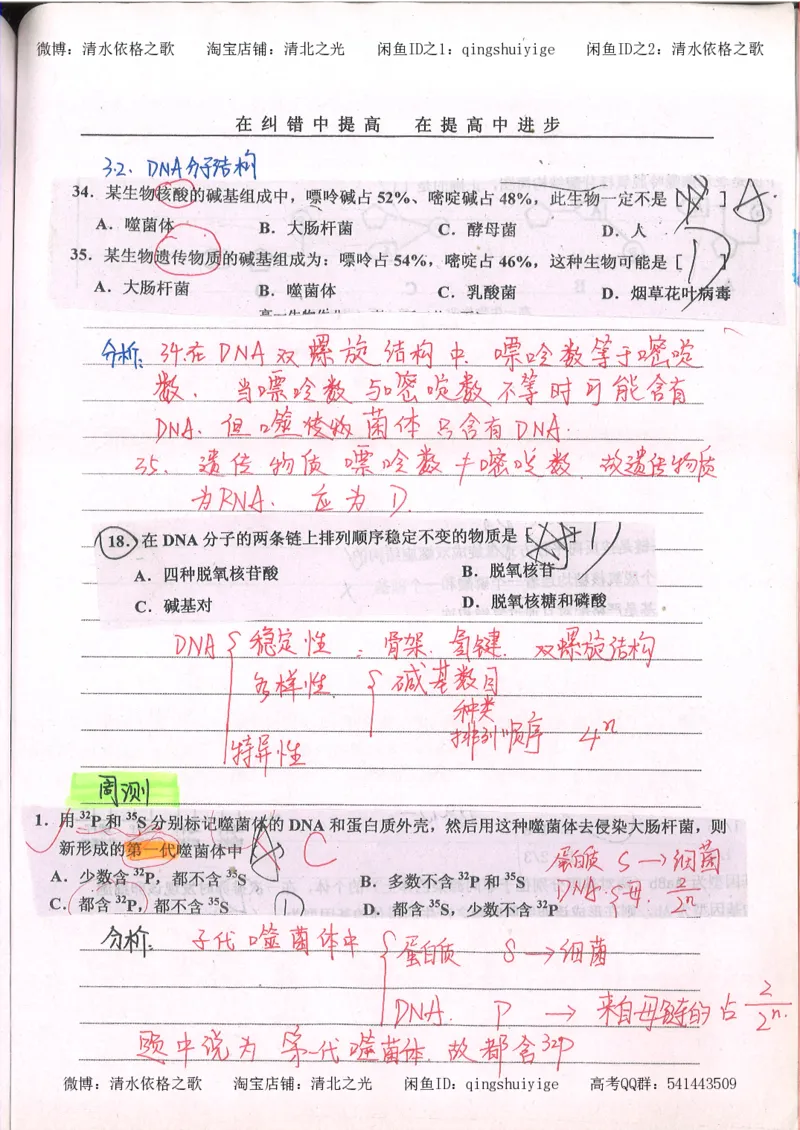 微博：清水依格之歌 淘宝店铺：清北之光 闲鱼ID之1：qingshuiyige 闲鱼ID之2：清水依格之歌
在纠错中提高 在提高中进步
3.2. DNA分子结构
34．某生物核酸的碱基组成中，嘌呤碱占52%、嘧啶碱占48%，此生物一定不是 [ ] A.
A．噬菌体 B．大肠杆菌 C．酵母菌 D．人
35．某生物遗传物质的碱基组成为：嘌呤占54%，嘧啶占46%，这种生物可能是 [ D ]
A．大肠杆菌 B．噬菌体 C．乳酸菌 D．烟草花叶病毒
分析：34.在DNA双螺旋结构中．嘌呤数等于嘧啶
数．当嘌呤数与嘧啶数不等时可能含有
DNA．但噬 菌体只含有DNA．
35．遗传物质嘌呤数≠嘧啶数．故遗传物质
为RNA．应为D．
18．在DNA分子的两条链上排列顺序稳定不变的物质是 [ ] D
A．四种脱氧核苷酸 B．脱氧核苷
C．碱基对 D．脱氧核糖和磷酸
DNA { 稳定性：骨架．氢键．双螺旋结构
多样性 { 碱基数目
种类
排列顺序 4ⁿ
特异性
周测
1．用³²P和³⁵S分别标记噬菌体的DNA和蛋白质外壳，然后用这种噬菌体去侵染大肠杆菌，则
新形成的第一代噬菌体中 C
蛋白质 S → 细菌
A．少数含³²P，都不含³⁵S B．多数不含³²P和³⁵S
DNA：母． 2/2ⁿ
C．都含³²P，都不含³⁵S D．都含³⁵S，少数不含³²P
分析：子代噬菌体中 { 蛋白质 S → 细菌
DNA． P → 来自母链的占 2/2ⁿ．
题中说为第一代噬菌体．故都含³²P
微博：清水依格之歌 淘宝店铺：清北之光 闲鱼ID：qingshuiyige 高考QQ群：541443509